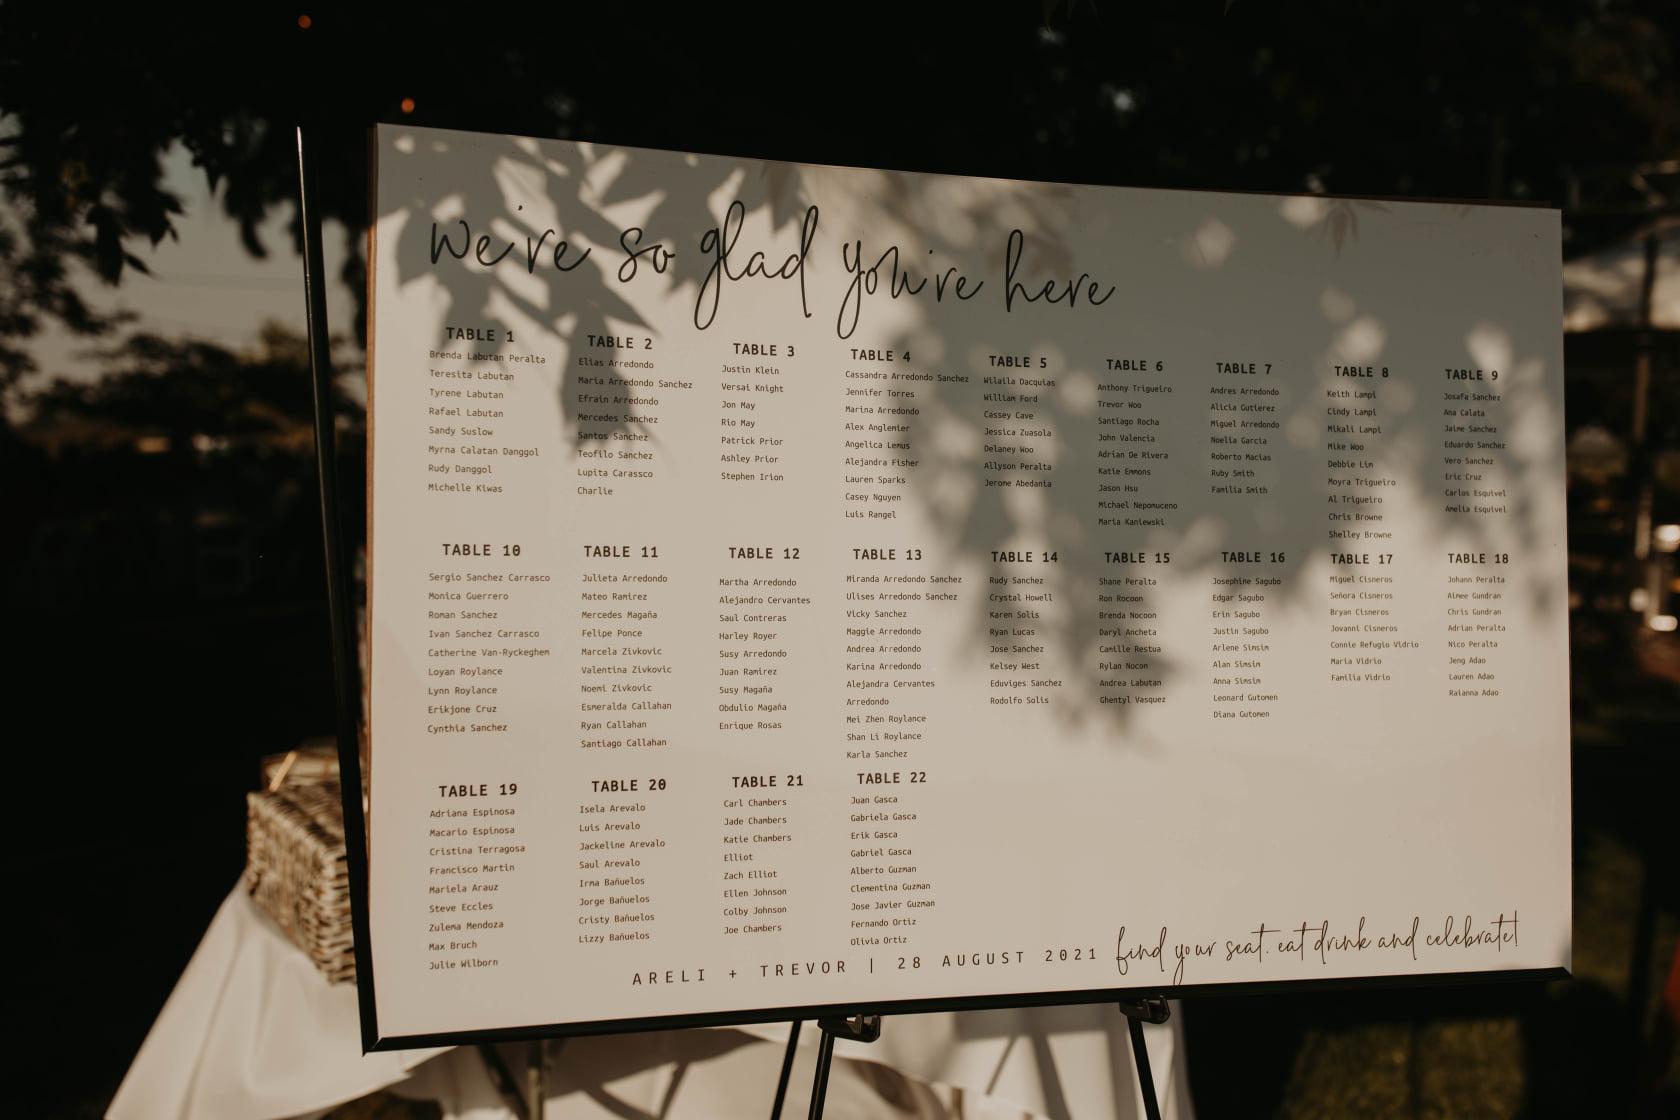 we're so glad you're here
TABLE 1
Brenda Labutan Peralta
Teresita Labutan
Tyrene Labutan
Rafael Labutan
Sandy Suslow
Myrna Calatan Danggol
Rudy Danggol
Michelle Kiwas
TABLE 2
Elias Arredondo
Maria Arredondo Sanchez
Efrain Arredondo
Mercedes Sanchez
Santos Sanchez
Teofilo Sanchez
Lupita Carassco
Charlie
TABLE 3
Justin Klein
Versai Knight
Jon May
Rio May
Patrick Prior
Ashley Prior
Stephen Irion
TABLE 4
Cassandra Arredondo Sanchez
Jennifer Torres
Marina Arredondo
Alex Anglemier
Angelica Lemus
Alejandra Fisher
Lauren Sparks
Casey Nguyen
Luis Rangel
TABLE 5
Wilaila Dacquias
William Ford
Cassey Cave
Jessica Zuasola
Delaney Woo
Allyson Peralta
Jerome Abedania
TABLE 6
Anthony Trigueiro
Trevor Woo
Santiago Rocha
John Valencia
Adrian De Rivera
Katie Emmons
Jason Hsu
Michael Nepomuceno
Maria Kaniewski
TABLE 7
Andres Arredondo
Alicia Gutierez
Miguel Arredondo
Noelia Garcia
Roberto Macias
Ruby Smith
Familia Smith
TABLE 8
Keith Lampi
Cindy Lampi
Mikali Lampi
Mike Woo
Debbie Lim
Moyra Trigueiro
Al Trigueiro
Chris Browne
Shelley Browne
TABLE 9
Josafa Sanchez
Ana Calata
Jaime Sanchez
Eduardo Sanchez
Vero Sanchez
Eric Cruz
Carlos Esquivel
Amelia Esquivel
TABLE 10
Sergio Sanchez Carrasco
Monica Guerrero
Roman Sanchez
Ivan Sanchez Carrasco
Catherine Van-Ryckeghem
Loyan Roylance
Lynn Roylance
Erikjone Cruz
Cynthia Sanchez
TABLE 11
Julieta Arredondo
Mateo Ramirez
Mercedes Magaña
Felipe Ponce
Marcela Zivkovic
Valentina Zivkovic
Noemi Zivkovic
Esmeralda Callahan
Ryan Callahan
Santiago Callahan
TABLE 12
Martha Arredondo
Alejandro Cervantes
Saul Contreras
Harley Royer
Susy Arredondo
Juan Ramirez
Susy Magaña
Obdulio Magaña
Enrique Rosas
TABLE 13
Miranda Arredondo Sanchez
Ulises Arredondo Sanchez
Vicky Sanchez
Maggie Arredondo
Andrea Arredondo
Karina Arredondo
Alejandra Cervantes
Arredondo
Mei Zhen Roylance
Shan Li Roylance
Karla Sanchez
TABLE 14
Rudy Sanchez
Crystal Howell
Karen Solis
Ryan Lucas
Jose Sanchez
Kelsey West
Eduviges Sanchez
Rodolfo Solis
TABLE 15
Shane Peralta
Ron Rocoon
Brenda Nocoon
Daryl Ancheta
Camille Restua
Rylan Nocon
Andrea Labutan
Ghentyl Vasquez
TABLE 16
Josephine Sagubo
Edgar Sagubo
Erin Sagubo
Justin Sagubo
Arlene Simsim
Alan Simsim
Anna Simsim
Leonard Gutomen
Diana Gutomen
TABLE 17
Miguel Cisneros
Señora Cisneros
Bryan Cisneros
Jovanni Cisneros
Connie Refugio Vidrio
Maria Vidrio
Familia Vidrio
TABLE 18
Johann Peralta
Aimee Gundran
Chris Gundran
Adrian Peralta
Nico Peralta
Jeng Adao
Lauren Adao
Raianna Adao
TABLE 19
Adriana Espinosa
Macario Espinosa
Cristina Terragosa
Francisco Martin
Mariela Arauz
Steve Eccles
Zulema Mendoza
Max Bruch
Julie Wilborn
TABLE 20
Isela Arevalo
Luis Arevalo
Jackeline Arevalo
Saul Arevalo
Irma Bañuelos
Jorge Bañuelos
Cristy Bañuelos
Lizzy Bañuelos
TABLE 21
Carl Chambers
Jade Chambers
Katie Chambers
Elliot
Zach Elliot
Ellen Johnson
Colby Johnson
Joe Chambers
TABLE 22
Juan Gasca
Gabriela Gasca
Erik Gasca
Gabriel Gasca
Alberto Guzman
Clementina Guzman
Jose Javier Guzman
Fernando Ortiz
Olivia Ortiz
ARELI + TREVOR | 28 AUGUST 2021 find your seat. eat drink and celebrate!